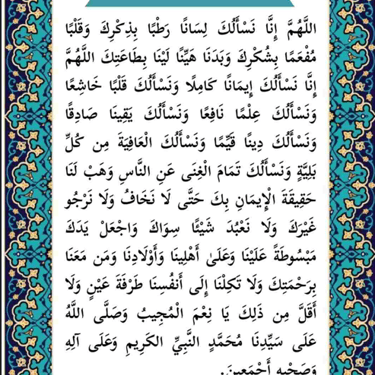 اللَّهُمَّ إِنَّا نَسْأَلُكَ لِسَانًا رَطْبًا بِذِكْرِكَ وَقَلْبًا
مُفْعَمًا بِشُكْرِكَ وَبَدَنًا هَيِّنًا لَيِّنًا بِطَاعَتِكَ اللَّهُمَّ
إِنَّا نَسْأَلُكَ إِيمَانًا كَامِلًا وَنَسْأَلُكَ قَلْبًا خَاشِعًا
وَنَسْأَلُكَ عِلْمًا نَافِعًا وَنَسْأَلُكَ يَقِينًا صَادِقًا
وَنَسْأَلُكَ دِينًا قَيِّمًا وَنَسْأَلُكَ الْعَافِيَةَ مِن كُلِّ
بَلِيَّةٍ وَنَسْأَلُكَ تَمَامَ الْغِنَى عَنِ النَّاسِ وَهَبْ لَنَا
حَقِيقَةَ الْإِيمَانِ بِكَ حَتَّى لَا نَخَافُ وَلَا نَرْجُو
غَيْرَكَ وَلَا نَعْبُدَ شَيْئًا سِوَاكَ وَاجْعَلْ يَدَكَ
مَبْسُوطَةً عَلَيْنَا وَعَلَىٰ أَهْلِينَا وَأَوْلَادِنَا وَمَن مَعَنَا
بِرَحْمَتِكَ وَلَا تَكِلْنَا إِلَى أَنْفُسِنَا طَرْفَةَ عَيْنٍ وَلَا
أَقَلَّ مِن ذَلِكَ يَا نِعْمَ الْمُجِيبُ وَصَلَّى اللَّهُ
عَلَى سَيِّدِنَا مُحَمَّدٍ النَّبِيِّ الكَرِيمِ وَعَلَى آلِهِ
وَصَحْبِهِ أَجْمَعِينَ.